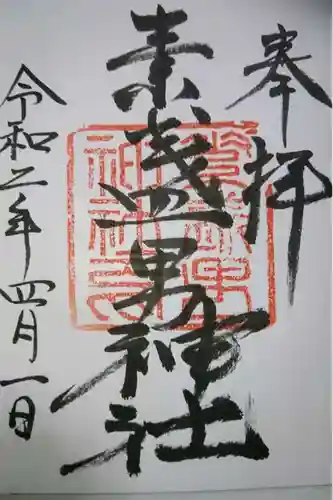 奉拝
素盞男神社
令和二年四月一日